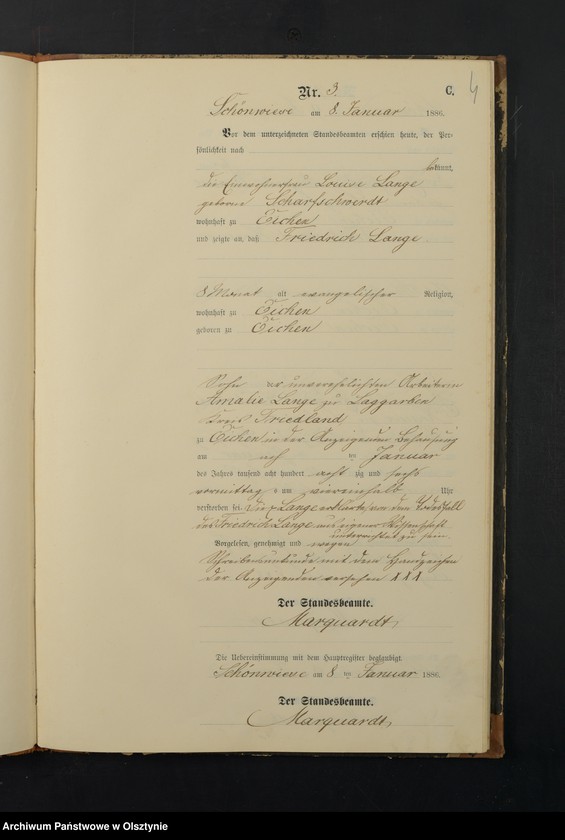 Nr. 3. C. 4
Schönwiese am 8. Januar 1886.
Vor dem unterzeichneten Standesbeamten erschien heute, der Per-
sönlichkeit nach
bekannt,
die Einwohnerfrau Louise Lange
geborne Scharfschwerdt
wohnhaft zu Eichen
und zeigte an, daß Friedrich Lange
8 Monat alt evangelischer Religion,
wohnhaft zu Eichen
geboren zu Eichen
Sohn der unverehelichten Arbeiterin
Amalie Lange zu Laggarben
Kreis Friedland
zu Eichen in der Anzeigenden Behausung
am ten Januar
des Jahres tausend acht hundert acht zig und sechs
vormittag s um viereinhalb Uhr
verstorben sei. Die p Lange erklärte, von dem Todesfall
des Friedrich Lange aus eigener Wissenschaft
unterrichtet zu sein.
Vorgelesen, genehmigt und wegen
Schreibensunkunde mit dem Handzeichen
der Anzeigenden versehen XXX
Der Standesbeamte.
Marquardt,
Die Uebereinstimmung mit dem Hauptregister beglaubigt.
Schönwiese am 8 ten Januar 1886.
Der Standesbeamte.
Marquardt,
Archiwum Państwowe w Olsztynie